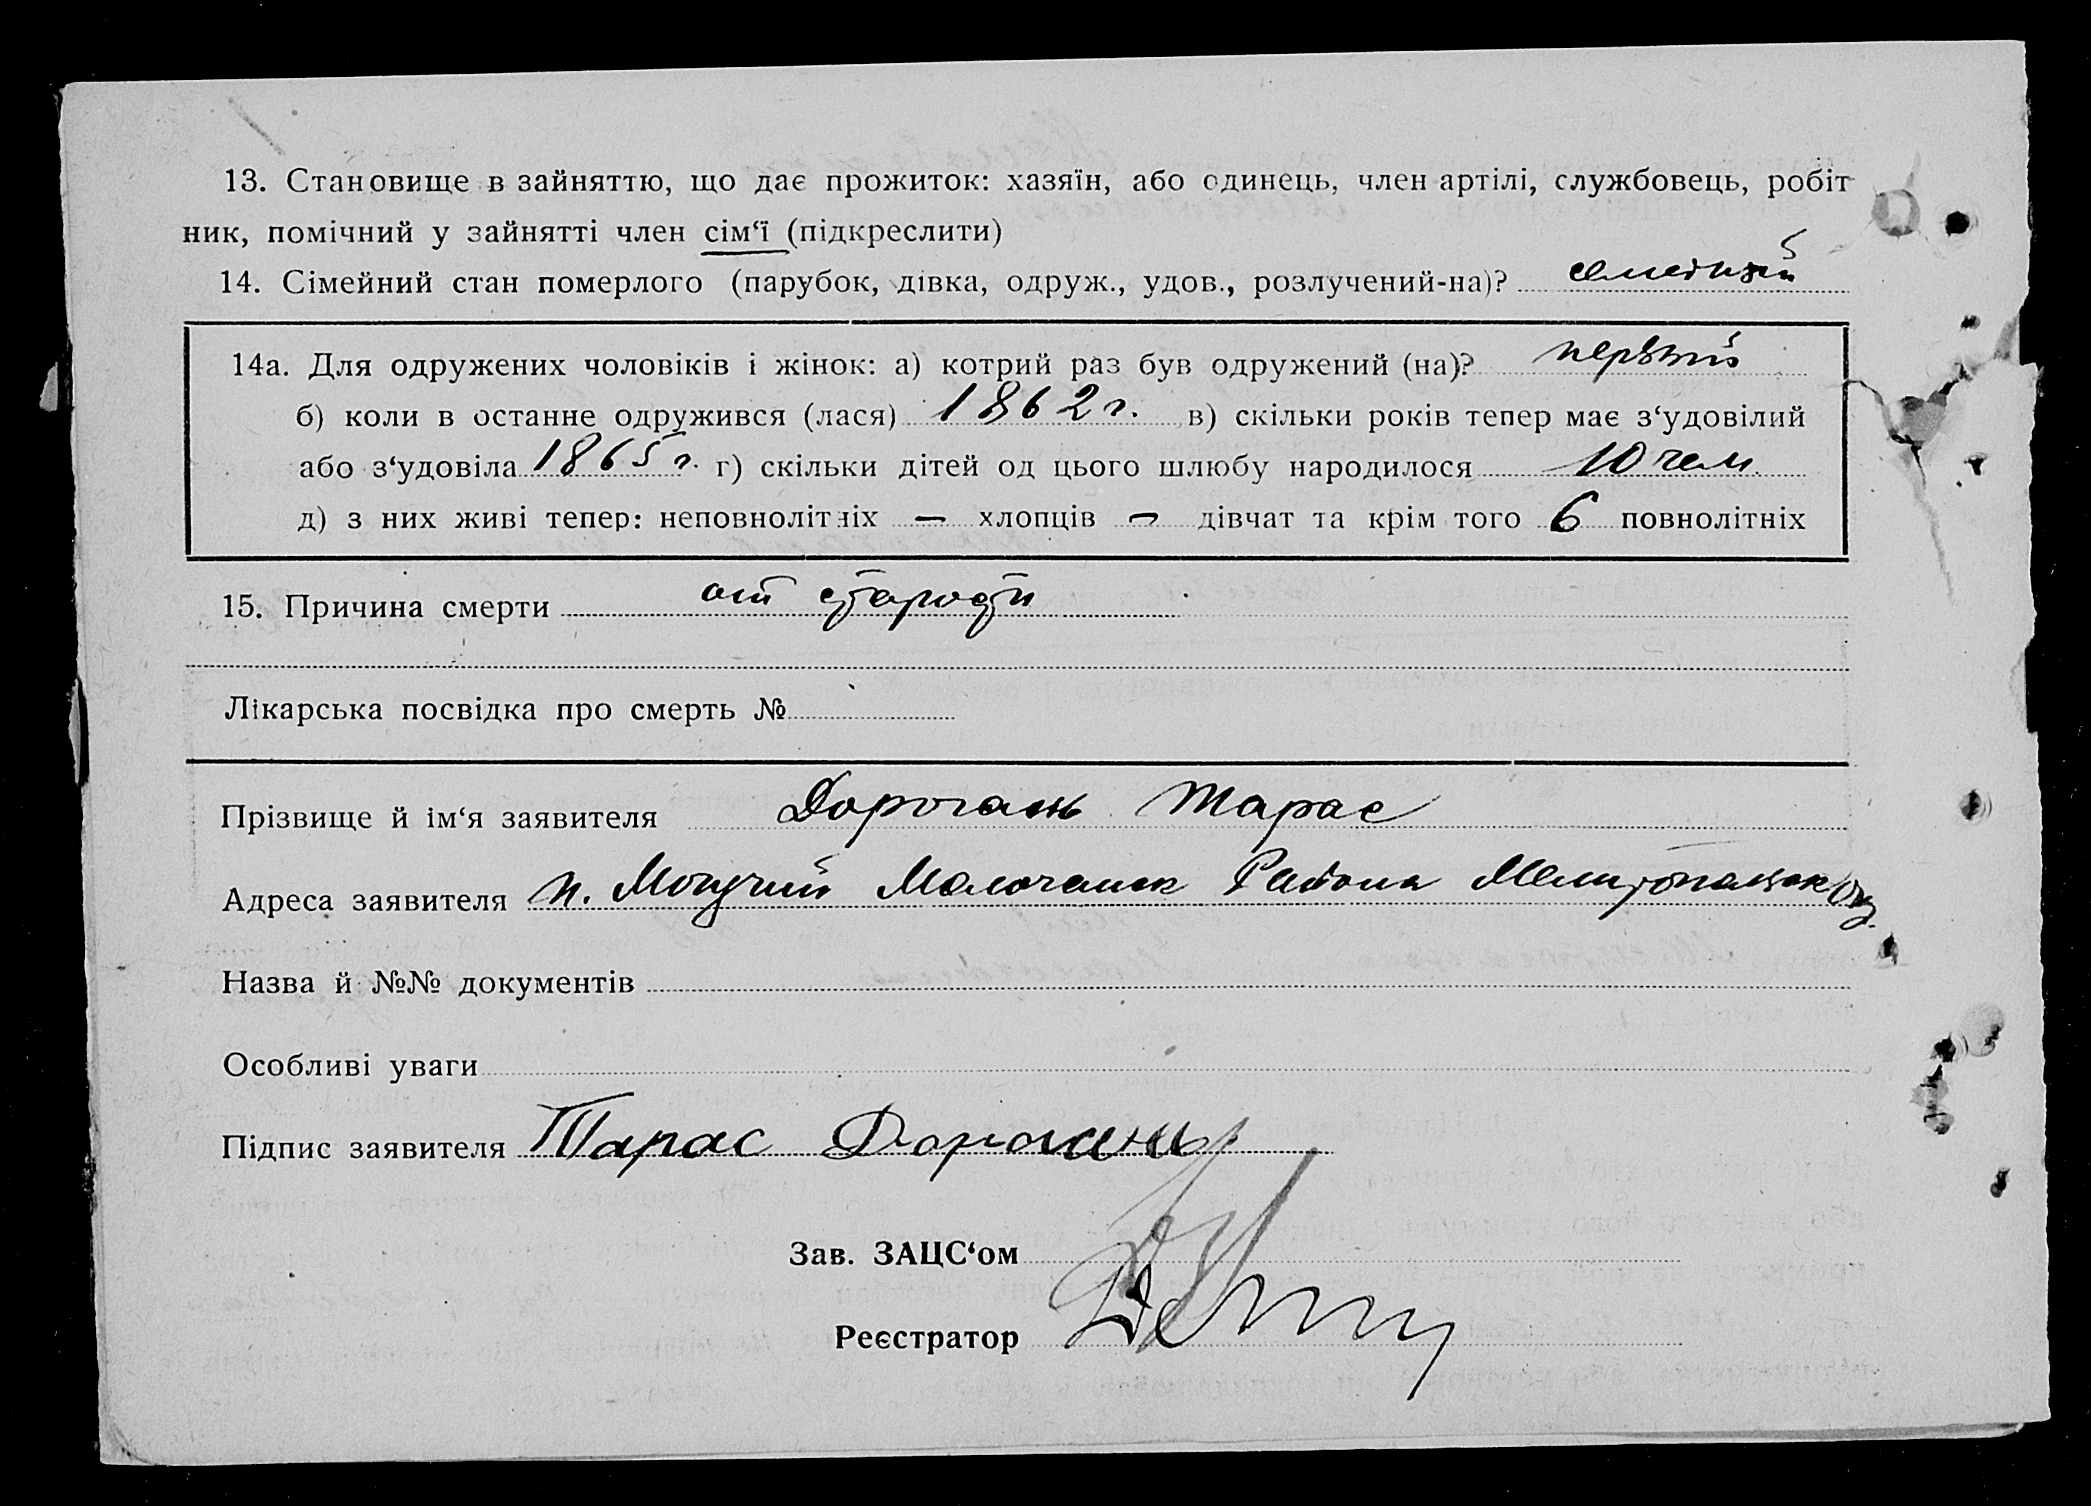 13. Становище в зайняттю, що дає прожиток: хазяїн, або одинець, член артілі, службовець, робіт
ник, помічний у зайнятті член сім‘ї (підкреслити)
14. Сімейний стан померлого (парубок, дівка, одруж., удов., розлучений-на)? семейный
14а. Для одружених чоловіків і жінок: а) котрий раз був одружений (на)? первый
б) коли в останне одружився (лася) 1862 г. в) скільки років тепер має з‘удовілий
або з‘удовіла 1865 г. г) скільки дітей од цього шлюбу народилося 10 чел.
д) з них живі тепер: неповнолітніх — хлопців — дівчат та крім того 6 повнолітніх
15. Причина смерти от старости
Лікарська посвідка про смерть №
Прізвище й ім‘я заявителя Дорогань Тарас
Адреса заявителя п. Могучий Молочанск Района Мелитопольск Окр.
Назва й №№ документів
Особливі уваги
Підпис заявителя Тарас Дорогань
Зав. ЗАЦС‘ом
Реєстратор